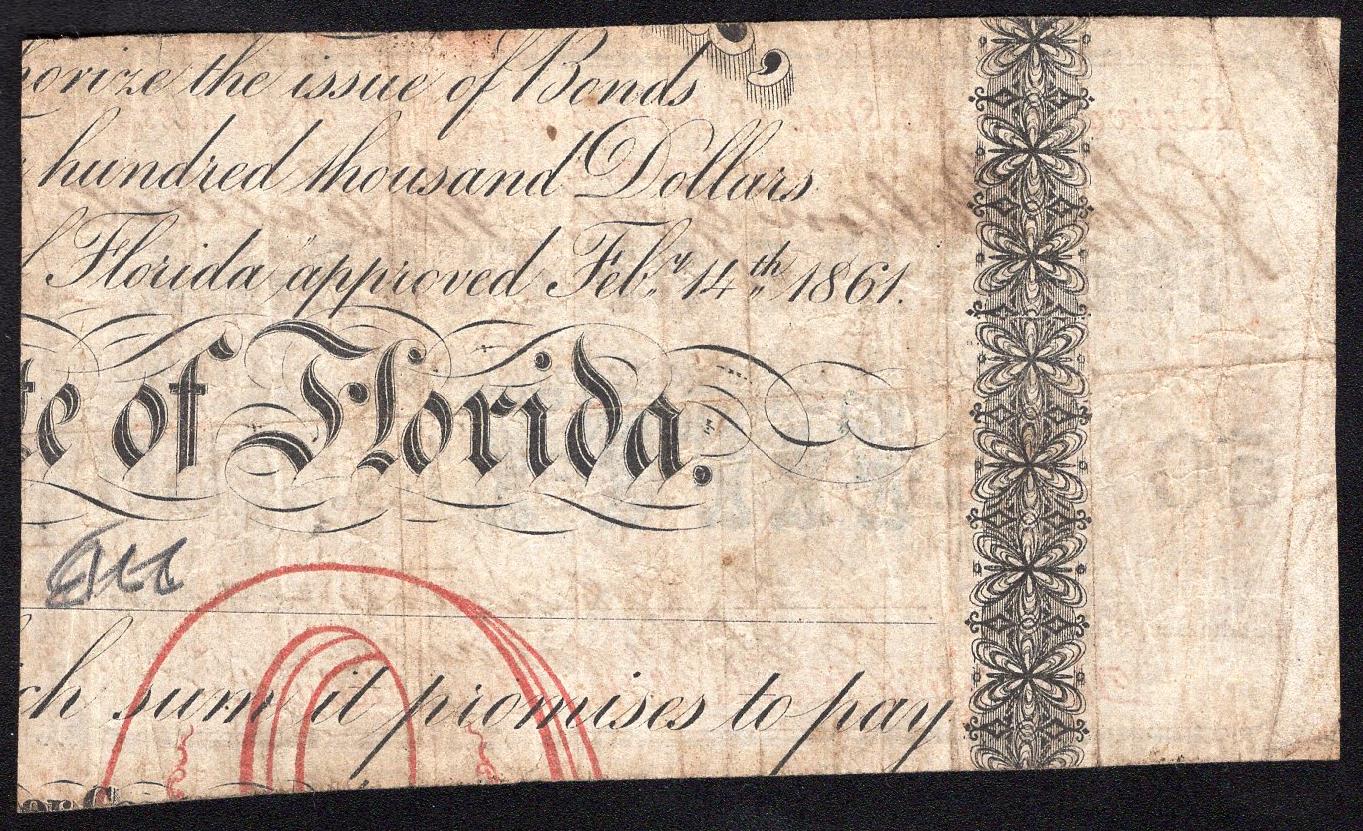 orize the issue of Bonds
hundred thousand Dollars
Florida approved Feb.y 14th 1861.
te of Florida.
ch sum it promises to pay
or